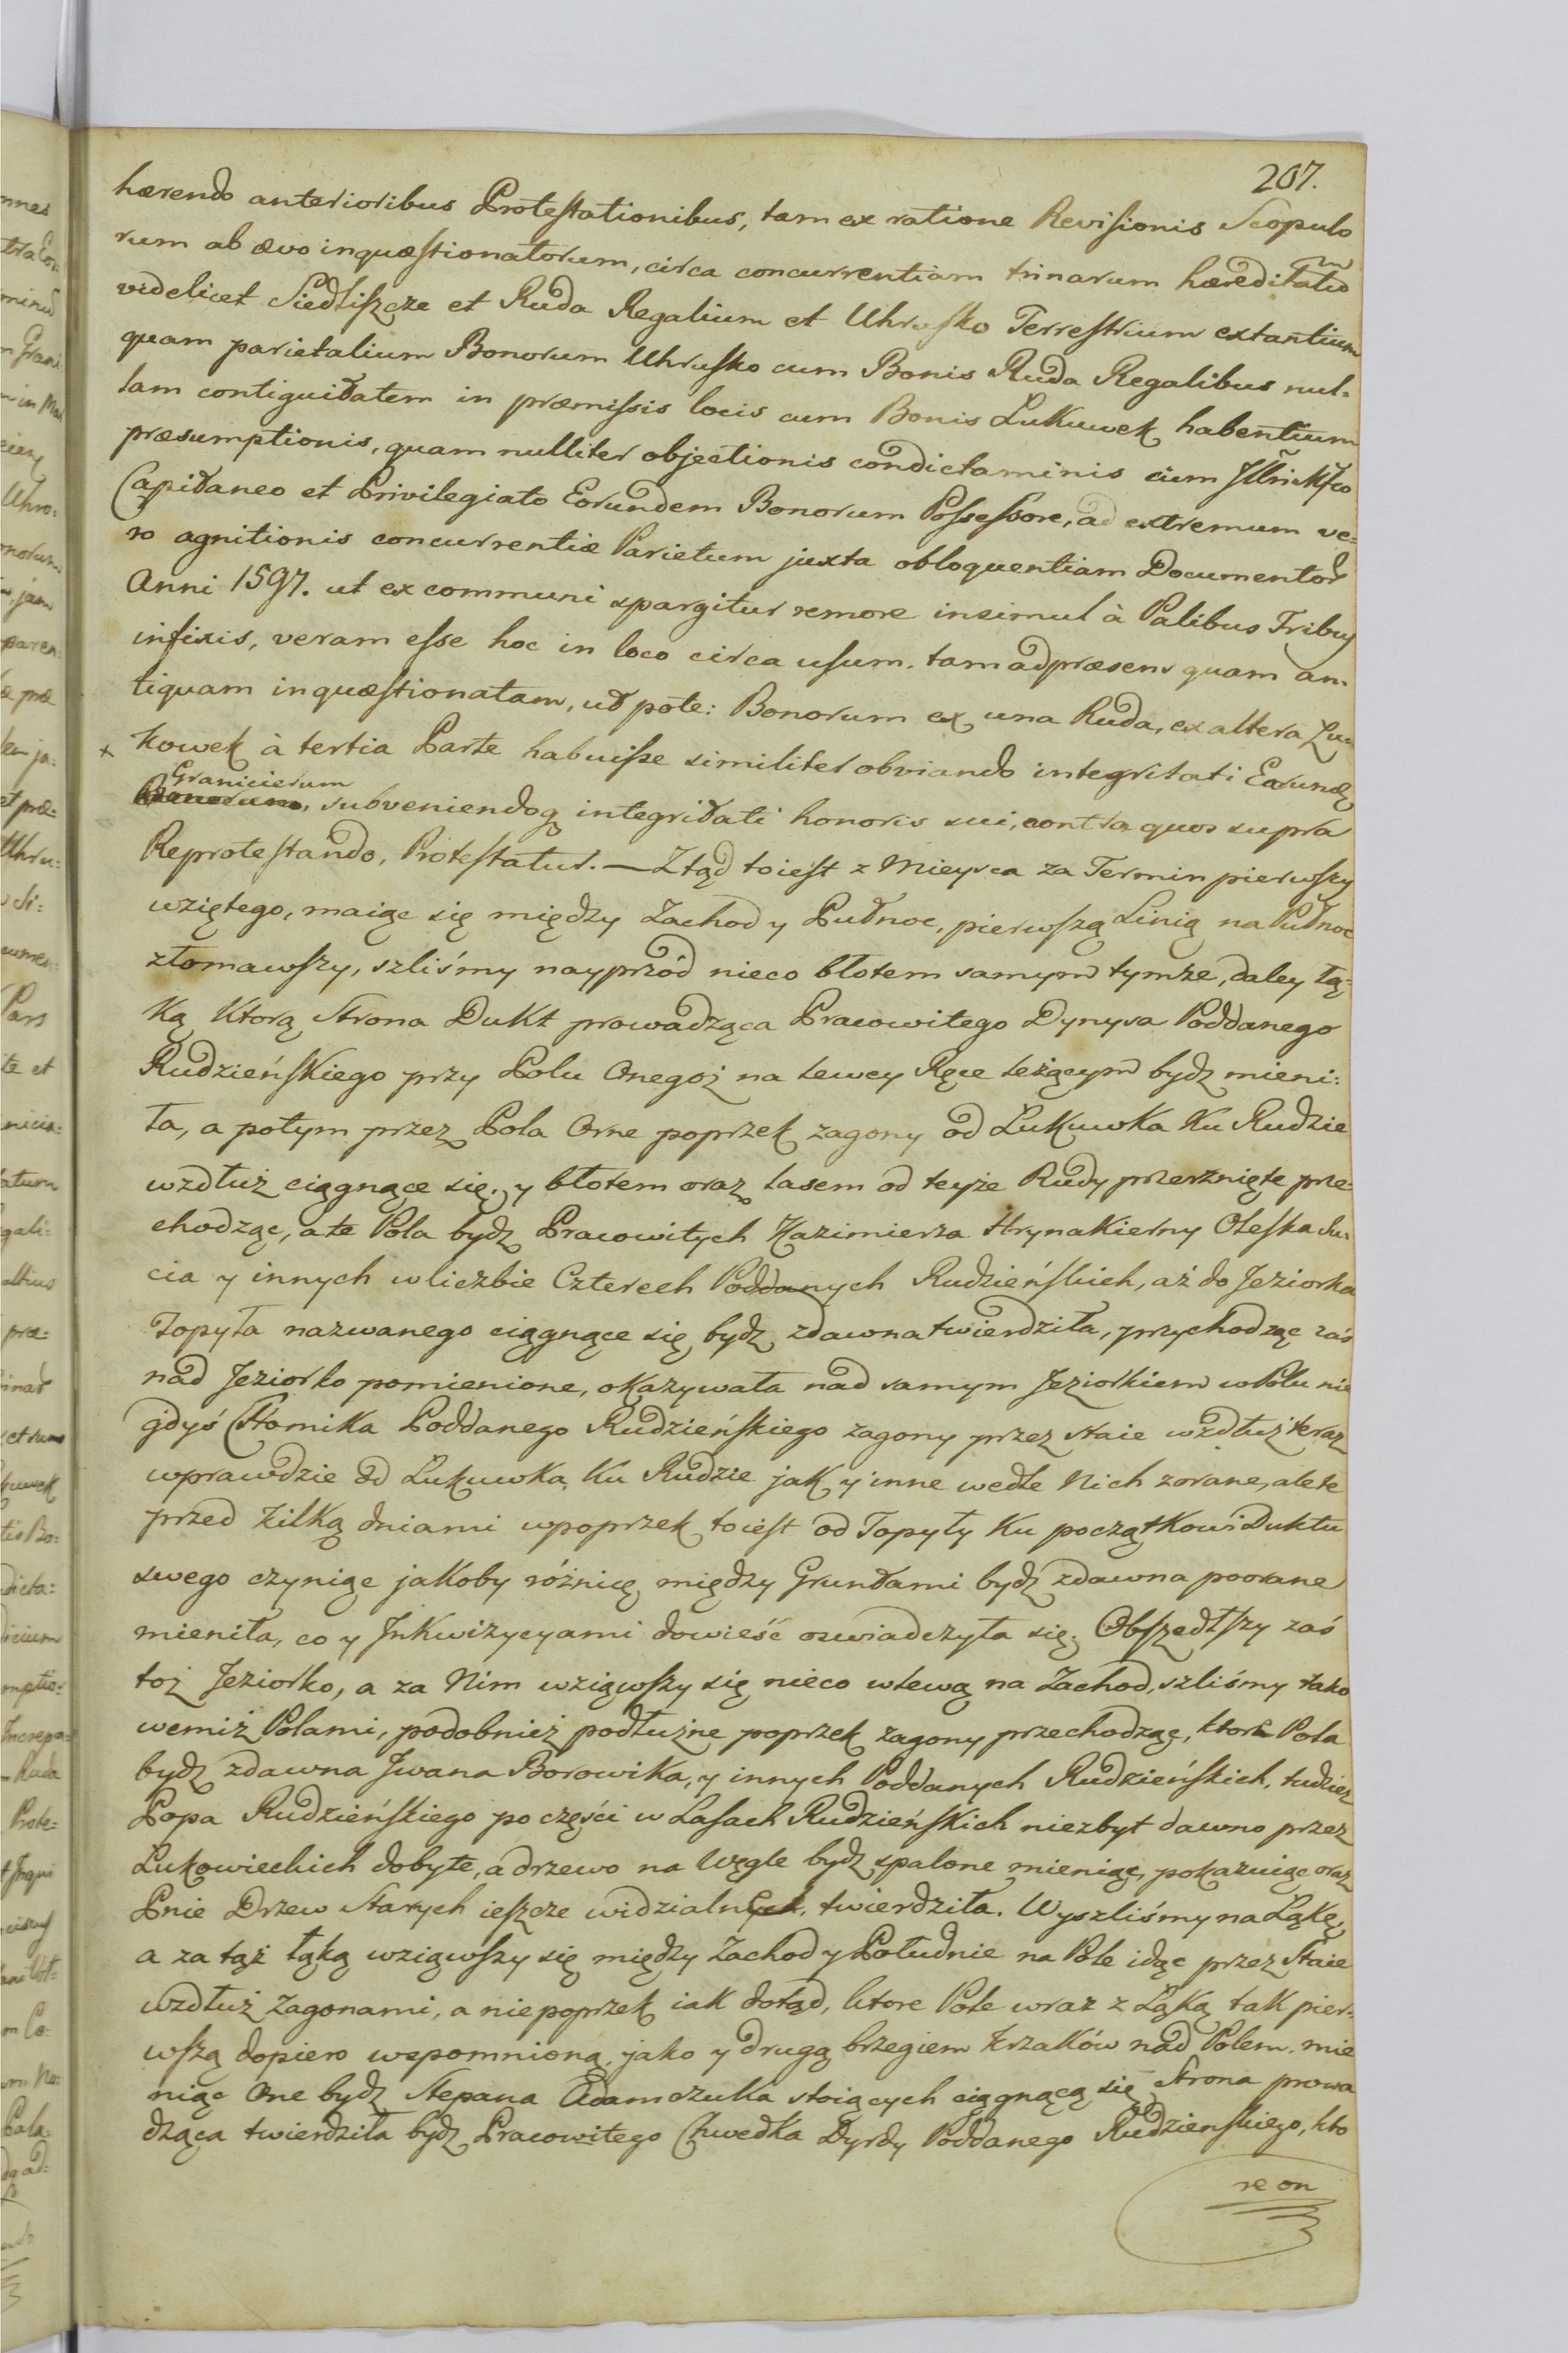 207.
hærendo anterioribus Protestationibus, tam ex ratione Revisionis Scopulo
rum ab ævo inquæstionatorum, circa concurrentiam trinarum hæreditatũ
videlicet Siedliszcze et Ruda Regalium et Uhrusko Terrestrium extantium
quam parietalium Bonorum Uhrusko cum Bonis Ruda Regalibus nul-
lam contiguitatem in præmissis locis cum Bonis Lukuwek habentium
præsumptionis, quam nulliter objectionis condictaminis cum
Capitaneo et Privilegiato Eorundem Bonorum Possessore, ad extremum ve=
ro agnitionis concurrentiæ Parietum juxta obloquentiam Documentor
Anni 1597. ut ex communi spargitur remore insimul à Palibus Tribus
infixis, veram esse hoc in loco circa usum, tam ad præsens quam an-
tiquam inquæstionatam, ut pote: Bonorum ex una Ruda, ex altera Lu-
+ kowek à tertia Parte habuisse similiter obviando integritati Earundę
Granicierum
Bonorum, subveniendoq integritati honoris sui, contra quos supra
Reprotestando, Protestatur. — Ztąd toiest z Mieysca za Termin pierwszy
wziętego, maiąc się między Zachod y Pułnoc, pierwszą Linią na Pułnoc
złomawszy, szliśmy nayprzód nieco błotem samym tymże, daley łą-
ką Ktorą Strona Dukt prowadząca Pracowitego Dynysa Poddanego
Rudzieńskiego przy Polu Onegoż na lewey Ręce leżącym bydz mieni:
ła, a potym przez Pola Orne poprzek zagony od Lukuwka Ku Rudzie
wzdłuż ciągnące się, y błotem oraz lasem od teyże Rudy przerżnięte prze-
chodząc, a te Pola bydz Pracowitych Kazimierza Hrynakierny Oleska Su-
cia y innych w liczbie Czterech Poddanych Rudzieńskich, aż do Jeziorka
Topyła nazwanego ciągnące się bydz zdawna twierdziła, przychodząc zaś
nad Jeziorko pomienione, okazywała nad samym Jeziorkiem w Polu nie
gdyś Chomika Poddanego Rudzieńskiego zagony przez staie wzdłuż teraz
wprawdzie od Lukuwka Ku Rudzie jak y inne wedle Nich zorane, ale te
przed kilką dniami wpoprzek toiest od Topyły Ku początkowi Duktu
swego czyniąc jakoby różnicę między Gruntami bydź zdawna poorane
mieniła, co y Jnkwizycyami dowieść oswiadczyła się. Obszedłszy zaś
toż Jeziorko, a za Nim wziąwszy się nieco wlewą na Zachod, szliśmy tako
wemiż Polami, podobnież podłużne poprzek zagony przechodząc, ktore Pola
bydź zdawna Jwana Borowika, y innych Poddanych Rudzieńskich, tudzież
Popa Rudzieńskiego po części w Lasach Rudzieńskich niezbyt dawno przez
Lukowieckich dobyte, a drzewo na Węgle bydz spalone mieniąc, pokazuiąc oraz
Pnie Drzew starych ieszcze widzialnych, twierdziła. Wyszliśmy na Łąkę,
a za tąż łąką wziąwszy się między Zachod y Południe na Pole idąc przez Staie
wzdłuż Zagonami, a nie poprzek iak dotąd, ktore Pole wraz z Łąką tak pier-
wszą dopiero wspomnioną, jako y drugą brzegiem krzaków nad Polem, mie
niąc One bydz Stepana Adamczuka stoiących ciągnącą się Strona prowa
dząca twierdziła bydz Pracowitego Chwedka Dyrdy Poddanego Rudzienskiego, kto
re on